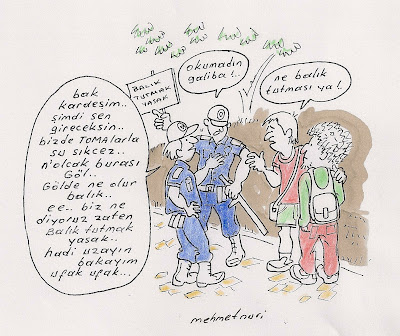 BALIK
TUTMAK
YASAK
okumadın
galiba!..
ne balık
tutması ya!..
bak
kardeşim..
şimdi sen
gireceksin..
bizde TOMAlarla
su sıkcez..
n'olcak burası
Göl..
Gölde ne olur
balık..
ee.. biz ne
diyoruz zaten
Balık tutmak
yasak..
hadi uzayın
bakayım
ufak ufak...
mehmetnuri